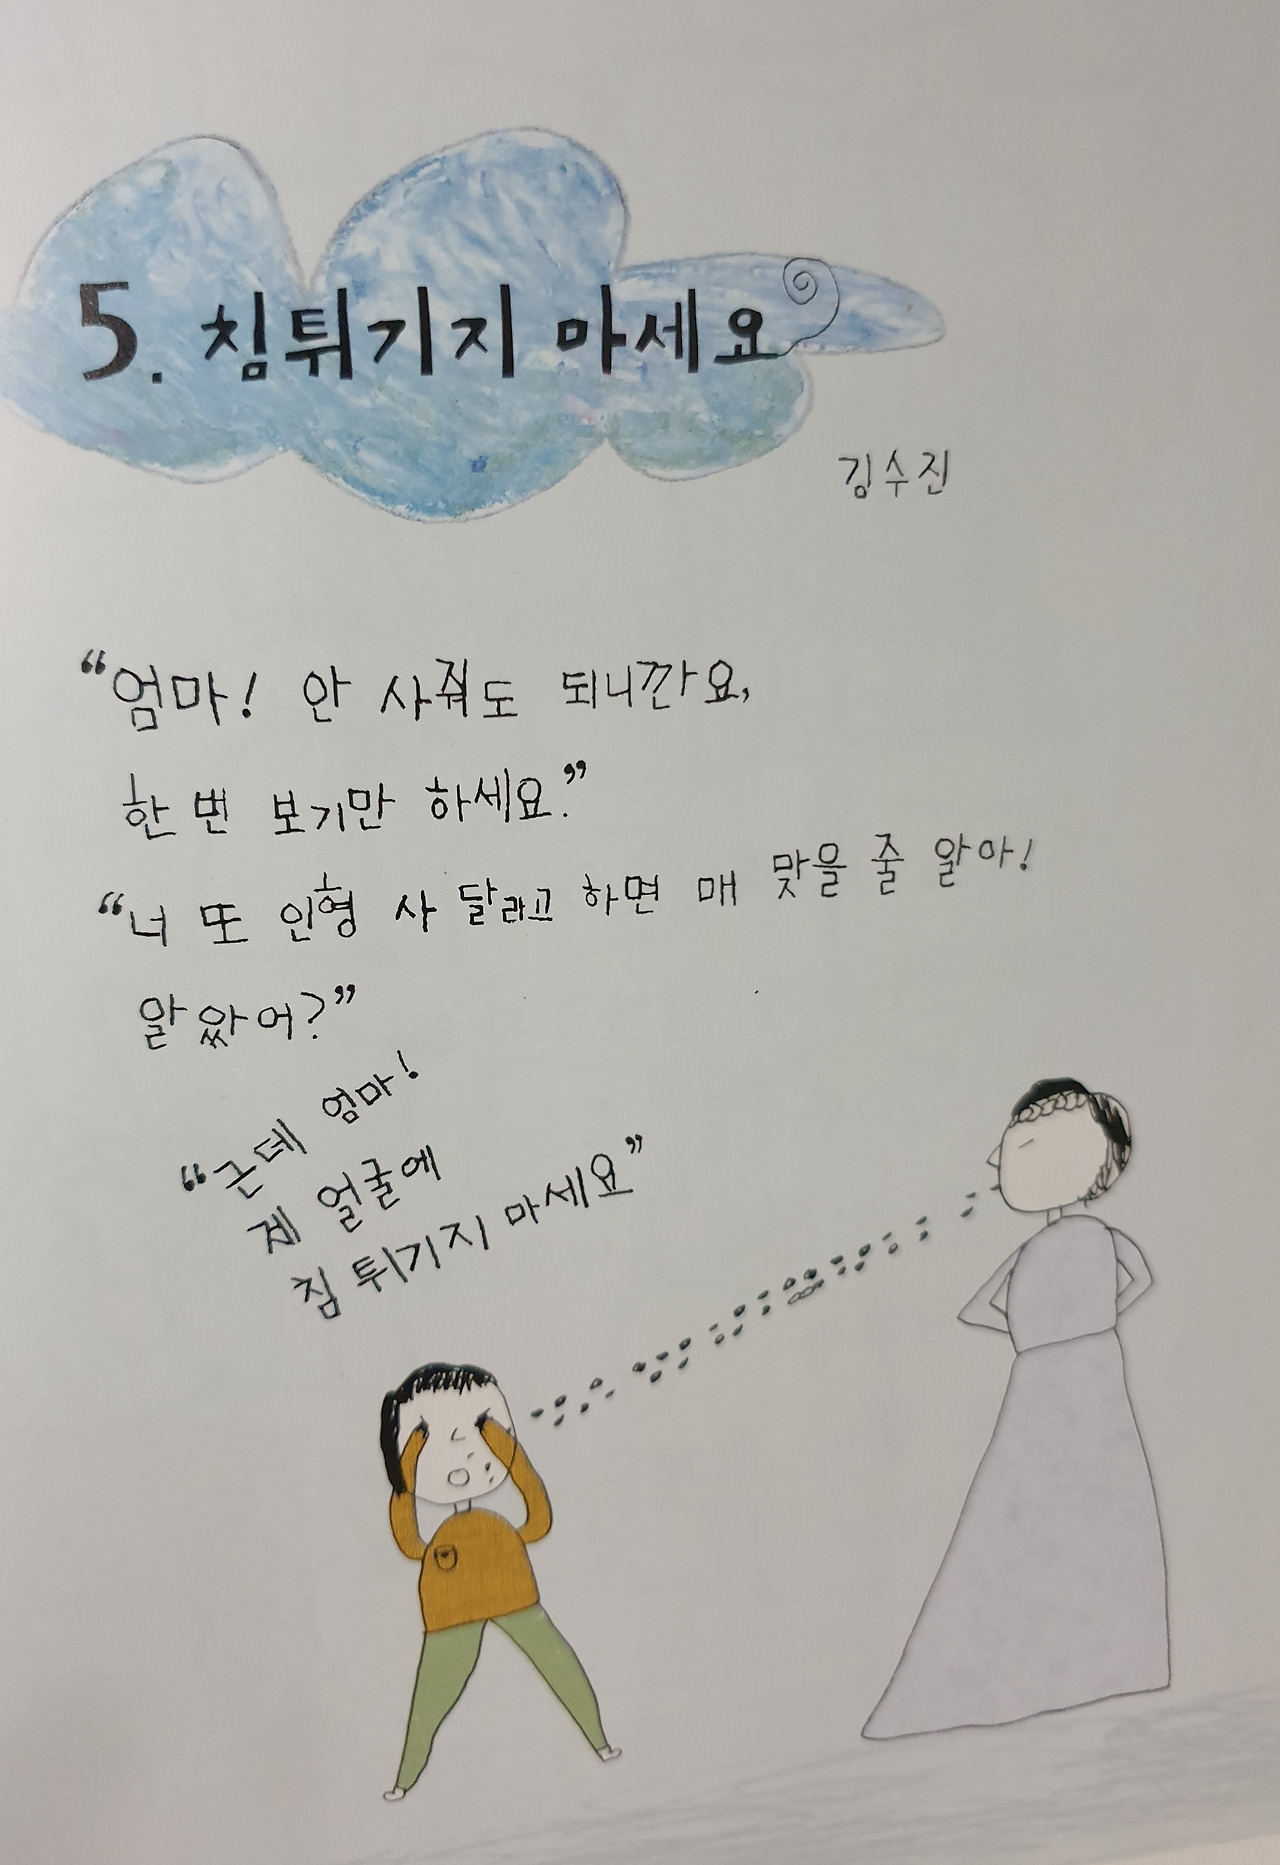 5. 침튀기지 마세요
김수진
“엄마! 안 사줘도 되니깐요,
한 번 보기만 하세요.”
“너 또 인형 사 달라고 하면 매 맞을 줄 알아!
알았어?”
“근데 엄마!
제 얼굴에
침 튀기지 마세요”